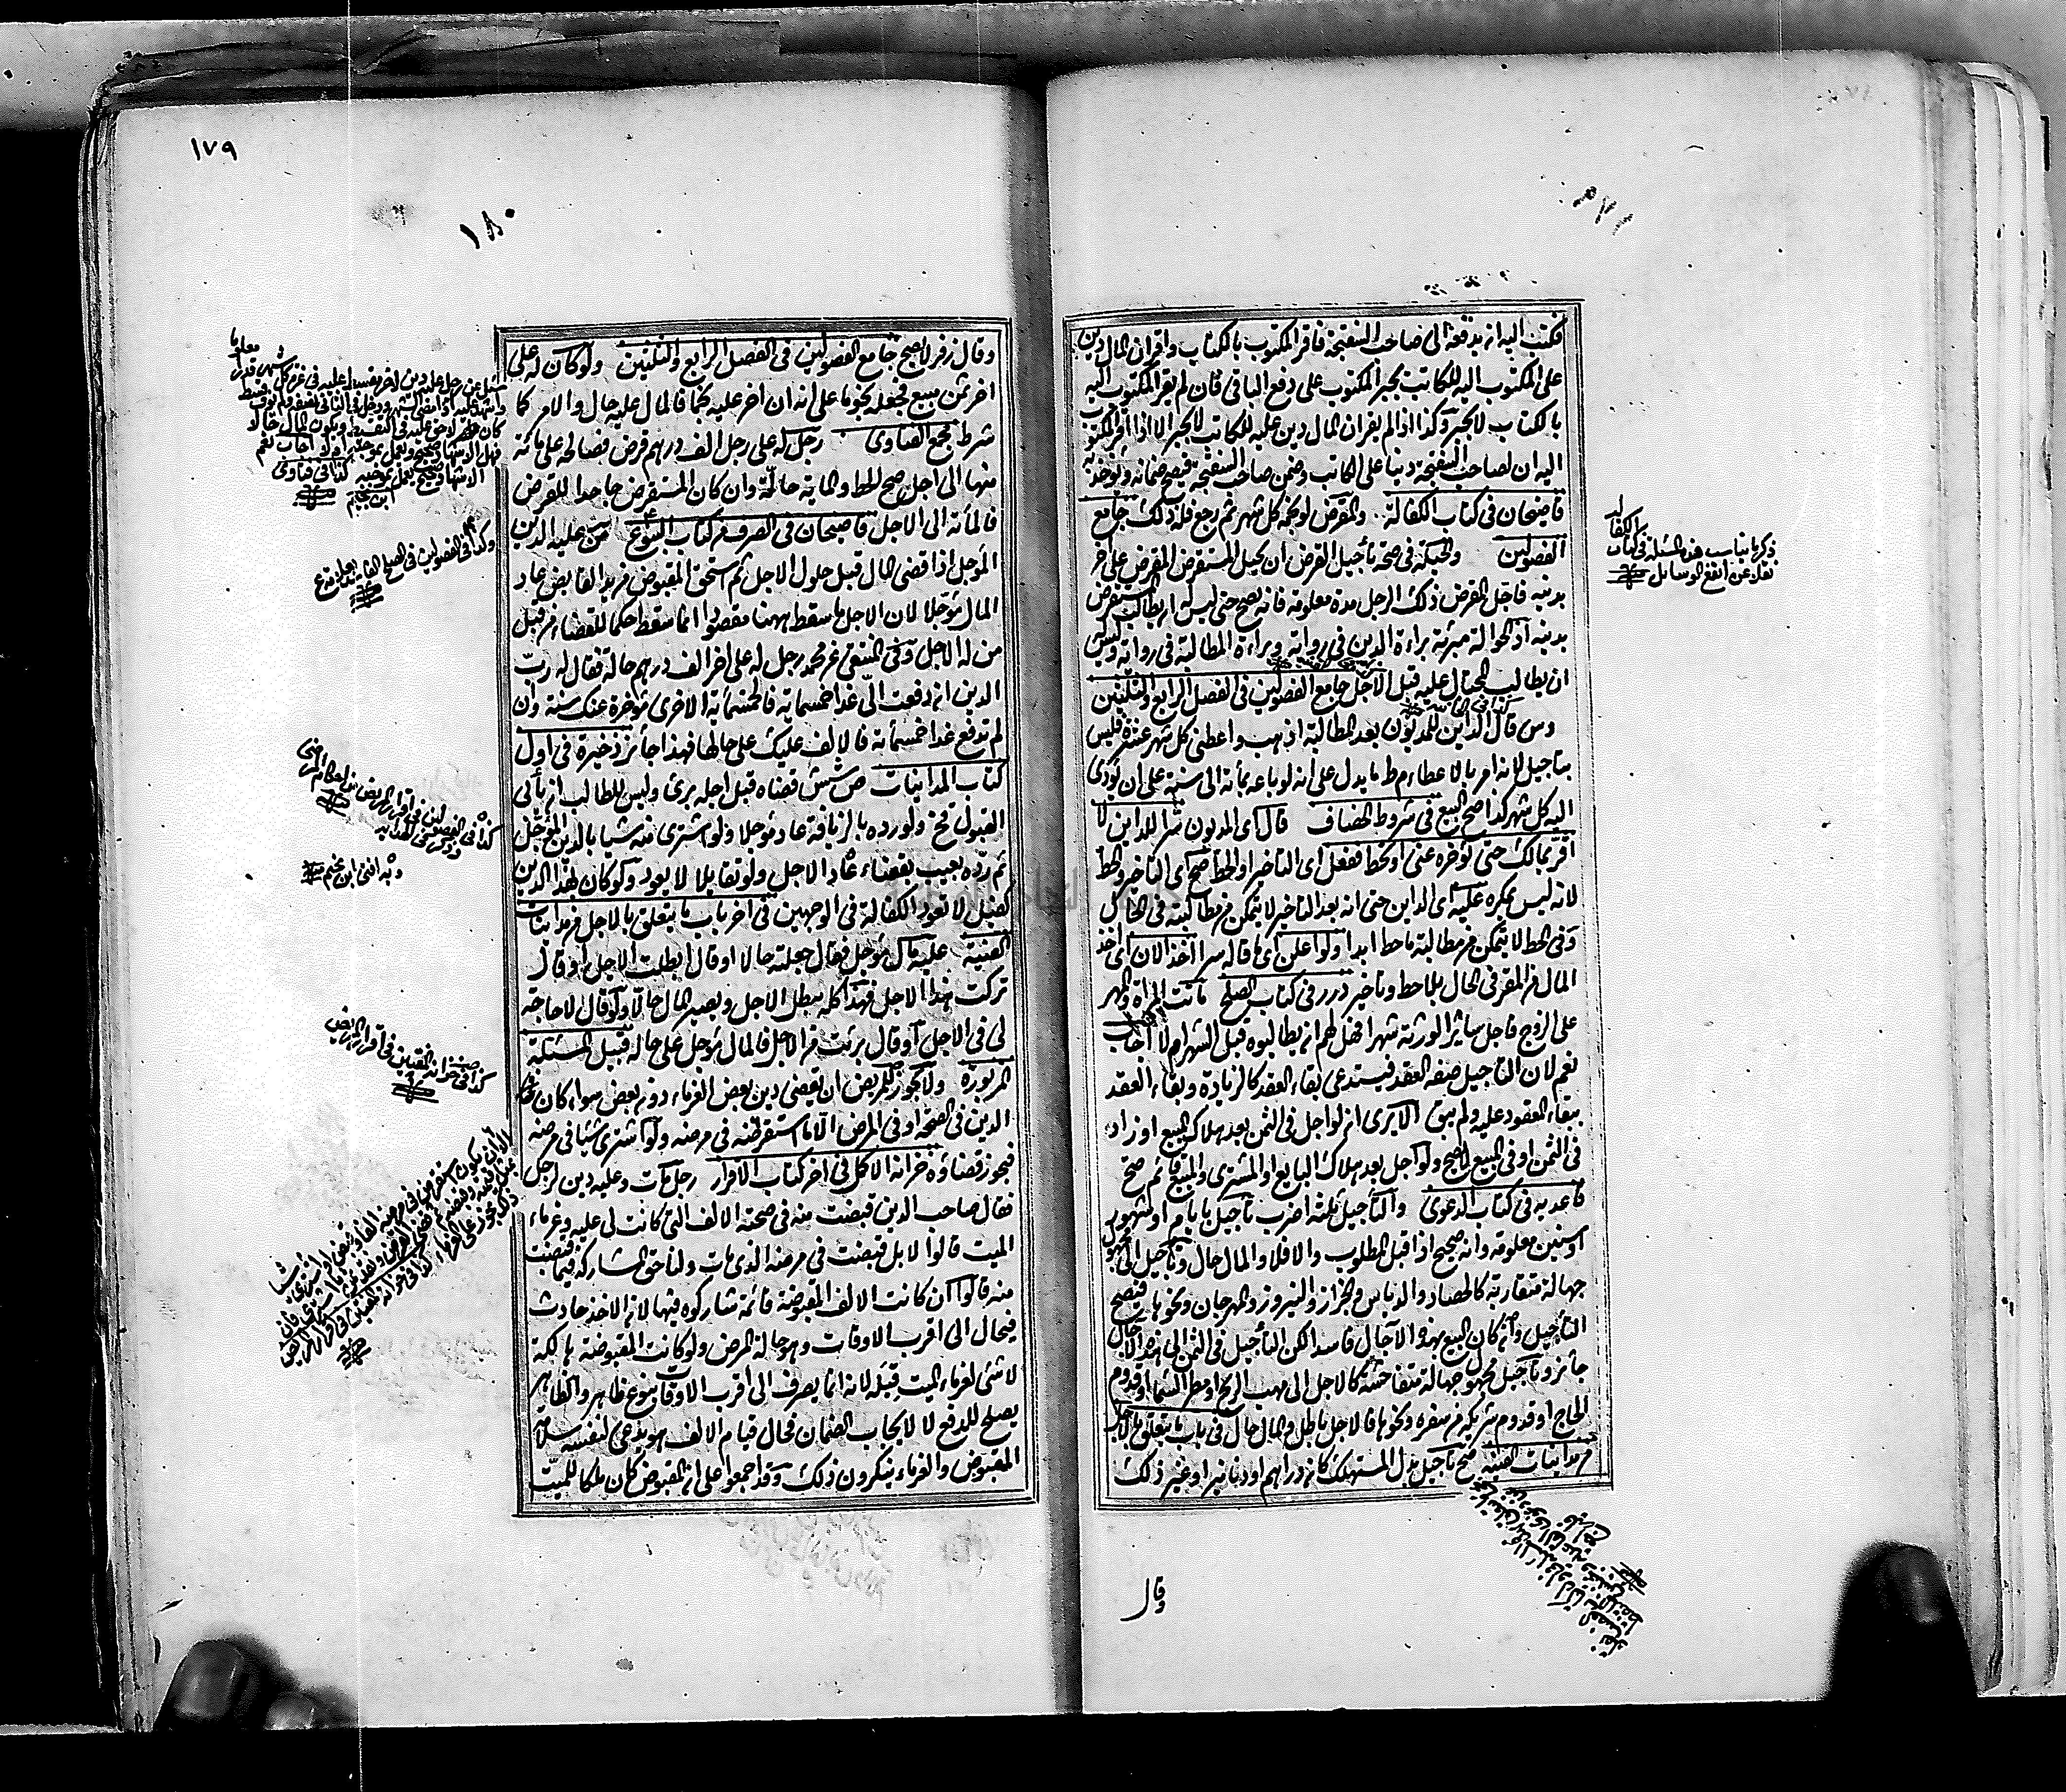 فكتب اليه ان يدفعه الى صاحب السفتجة فاقر المكتوب بالكتاب واقر ان المال دين
على المكتوب اليه للكاتب يجبر المكتوب على دفع الباقى فان لم يقر المكتوب اليه
بالكتاب لا يجبر وكذا اذا لم يقر ان المال دين عليه للكاتب لا يجبر الا اذا اقر المكتوب
اليه ان لصاحب السفتجة دينا على الكاتب وضمن صاحب السفتجة فيصح ضمانه ويؤخذ به
قاضيخان فى كتاب الكفالة والمقرض لو نجمه كل شهر ثم رجع فله ذلك جامع
الفصولين والحيلة فى صحة تأجيل القرض ان يحيل المستقرض المقرض على اخر
بدينه فاجل المقرض ذلك الرجل مدة معلومة فانه يصح حتى ليس له ان يطالب المستقرض
بدينه اذ الحوالة مبرئة براءة الدين فى رواية وبراءة المطالبة فى رواية وليس له
ان يطالب المحتال عليه قبل الاجل جامع الفصولين فى الفصل الرابع والثلثين
ومن قال الداين للمديون بعد المطالبة اذهب واعطنى كل شهر عشرة فليس
بتأجيل لانه امر بالاعطاء ط ما يدل على انه لو باعه بمأة الى سنة على ان يؤدى
اليه كل شهر كذا صح البيع فى شروط الخصاف قال اى المديون سرا للداين لا
اقر بمالك حتى تؤخره عنى او تحط ففعل اى التاخير او الحط صح اى التاخير والحط
لانه ليس بمكره عليه اى الداين حتى انه بعد التاخير لا يتمكن من مطالبته فى الحال
وفى الحط لا يتمكن من مطالبة ما حط ابدا ولو اعلن اى ما قاله سرا اخذ الان اى اخذ
المال من المقر فى الحال بلا حط وتاخير درر فى كتاب الصلح ماتت المرأة والمهر
على الزوج فاجل سائر الورثة شهرا فهل لهم ان يطالبوه قبل الشهر ام لا اجاب
نعم لان التأجيل صفة العقد فيستدعى بقاء العقد كالزيادة وبقاء العقد
ببقاء المعقود عليه ولم يبق الا يرى انه لو اجل فى الثمن بعد هلاك المبيع او زاد
فى الثمن او فى المبيع لا يصح ولو اجل بعد هلاك البايع او المشترى والمبيع قائم صح
قاعديه فى كتاب الدعوى والتأجيل ثلثة اضرب تأجيل بايام او شهور
او سنين معلومة وانه صحيح اذا قبل المطلوب والا فلا والمال حال وتأجيل الى مجهول
جهالة متقاربة كالحصاد والدياس والجزاز والنيروز والمهرجان ونحوها فيصح
التأجيل وان كان البيع بهذه الآجال فاسدا لكن التأجيل فى الثمن الى هذه الآجال
جائز وتأجيل مجهول جهالة متفاحشة كالاجل الى مهب الريح او مطر السماء او قدوم
الحاج او قدوم شريكه من سفره ونحوها فالاجل باطل والمال حال فى باب ما يتعلق بالاجل
من مداينات القنية صح تأجيل بدل المستهلك كان دراهم او دنانير او غير ذلك
وقال
ذكر ما يناسب هذه المسئلة فى كتاب الكفالة
نقلا عن انفع الوسائل
١٧٩
١٨٠
وقال زفر لا يصح جامع الفصولين فى الفصل الرابع والثلثين ولو كان له على
اخر ثمن مبيع فجعله نجوما على انه ان اخر عليه نجما فالمال عليه حال والامر كما
شرط مجمع الفتاوى رجل له على رجل الف درهم قرض فصالحه على مائة
منها الى اجل صح الحط والماية حالة وان كان المستقرض جاحدا للقرض
فالمأة الى الاجل قاضيخان فى الصرف من كتاب البيوع من عليه الدين
المؤجل اذا قضى المال قبل حلول الاجل ثم استحق المقبوض من يد القابض عاد
المال مؤجلا لان الاجل ما سقط ههنا مقصودا انما سقط حكما للقضاء من قبل
من له الاجل وفى المنتقى عن محمد رجل له على اخر الف درهم حالة فقال له رب
الدين ان دفعت الى غدا خمسماية فالخمسماية الاخرى مؤخرة عنك سنة وان
لم تدفع غدا خمسماية فالالف عليك على حالها فهذا جائز ذخيرة فى اول
كتاب المداينات ص شش قضاه قبل اجله برئ وليس للطالب ان يأبى
القبول نخ ولو رده بالزيافة عاد مؤجلا ولو اشترى منه شيئا بالدين المؤجل
ثم رده بعيب بقضاء عاد الاجل ولو تقايلا لا يعود ولو كان لهذا الدين
كفيل لا تعود الكفالة فى الوجهين فى اخر باب ما يتعلق بالاجل من مداينات
القنية عليه مال مؤجل فقال جعلته حالا او قال ابطلت الاجل او قال
تركت هذا الاجل فهذا كله يبطل الاجل ويصير المال حالا ولو قال لا حاجة
لى فى الاجل او قال برئت من الاجل فالمال مؤجل على حاله قبيل المسئلة
المزبورة ولا يجوز للمريض ان يقضى دين بعض الغرماء دون بعض سواء كان
الدين فى الصحة او فى المرض الا ما استقرضه فى مرضه ولو اشترى شيئا فى مرضه
فيجوز قضاؤه خزانة الاكمل فى اخر كتاب الاقرار رجل مات وعليه دين لرجل
فقال صاحب الدين قبضت منه فى صحته الالف التى كانت لى عليه وغرماء
الميت قالوا لا بل قبضت فى مرضه الذى مات ولنا حق المشاركة فيما قبضت
منه قالوا ان كانت الالف المقبوضة قائمة شاركوه فيها لان الاخذ حادث
فيحال الى اقرب الاوقات وهو حالة المرض ولو كانت المقبوضة هالكة
لا شئ لغرماء الميت قبله لانه انما يصرف الى اقرب الاوقات بنوع ظاهر والظاهر
يصلح للدفع لا لايجاب الضمان فحال قيام الالف هو يدعى لنفسه سلامة
المقبوض والغرماء ينكرون ذلك وقد اجمعوا على ان المقبوض كان ملكا للميت
وبه افتى ابن نجيم